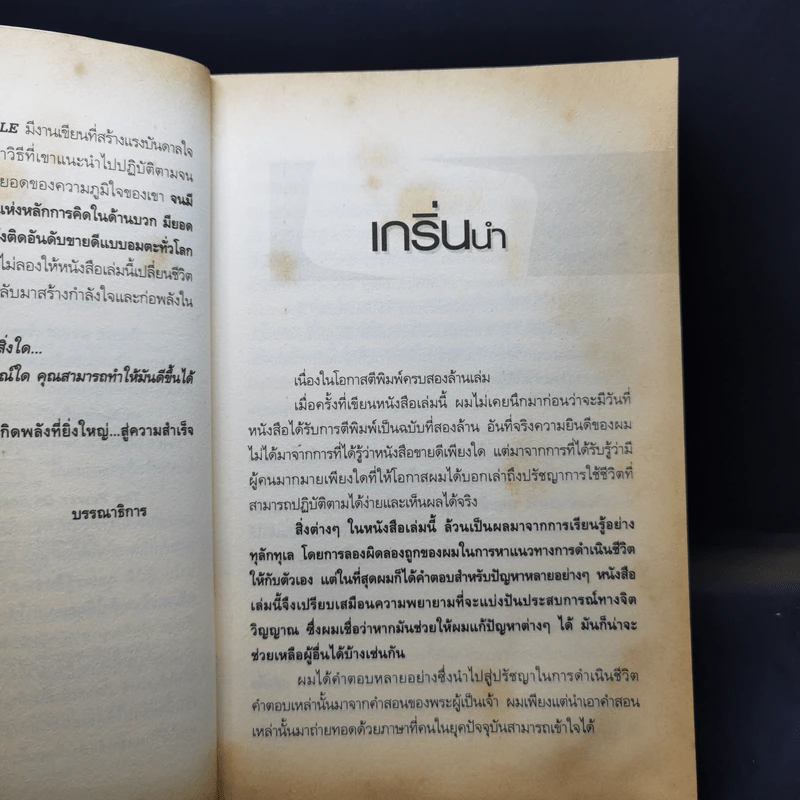 LE มีงานเขียนที่สร้างแรงบันดาลใจ
าวิธีที่เขาแนะนำไปปฏิบัติตามจน
ยอดของความภูมิใจของเขา จนมี
แห่งหลักการคิดในด้านบวก มียอด
ังติดอันดับขายดีแบบอมตะทั่วโลก
ไม่ลองให้หนังสือเล่มนี้เปลี่ยนชีวิต
ลับมาสร้างกำลังใจและก่อพลังใน
สิ่งใด...
ณ์ใด คุณสามารถทำให้มันดีขึ้นได้
กิดพลังที่ยิ่งใหญ่...สู่ความสำเร็จ
บรรณาธิการ
เกริ่นนำ
เนื่องในโอกาสตีพิมพ์ครบสองล้านเล่ม
เมื่อครั้งที่เขียนหนังสือเล่มนี้ ผมไม่เคยนึกมาก่อนว่าจะมีวันที่
หนังสือได้รับการตีพิมพ์เป็นฉบับที่สองล้าน อันที่จริงความยินดีของผม
ไม่ได้มาจากการที่ได้รู้ว่าหนังสือขายดีเพียงใด แต่มาจากการที่ได้รับรู้ว่ามี
ผู้คนมากมายเพียงใดที่ให้โอกาสผมได้บอกเล่าถึงปรัชญาการใช้ชีวิตที่
สามารถปฏิบัติตามได้ง่ายและเห็นผลได้จริง
สิ่งต่างๆ ในหนังสือเล่มนี้ ล้วนเป็นผลมาจากการเรียนรู้อย่าง
ทุลักทุเล โดยการลองผิดลองถูกของผมในการหาแนวทางการดำเนินชีวิต
ให้กับตัวเอง แต่ในที่สุดผมก็ได้คำตอบสำหรับปัญหาหลายอย่างๆ หนังสือ
เล่มนี้จึงเปรียบเสมือนความพยายามที่จะแบ่งปันประสบการณ์ทางจิต
วิญญาณ ซึ่งผมเชื่อว่าหากมันช่วยให้ผมแก้ปัญหาต่างๆ ได้ มันก็น่าจะ
ช่วยเหลือผู้อื่นได้บ้างเช่นกัน
ผมได้คำตอบหลายอย่างซึ่งนำไปสู่ปรัชญาในการดำเนินชีวิต
คำตอบเหล่านั้นมาจากคำสอนของพระผู้เป็นเจ้า ผมเพียงแต่นำเอาคำสอน
เหล่านั้นมาถ่ายทอดด้วยภาษาที่คนในยุคปัจจุบันสามารถเข้าใจได้